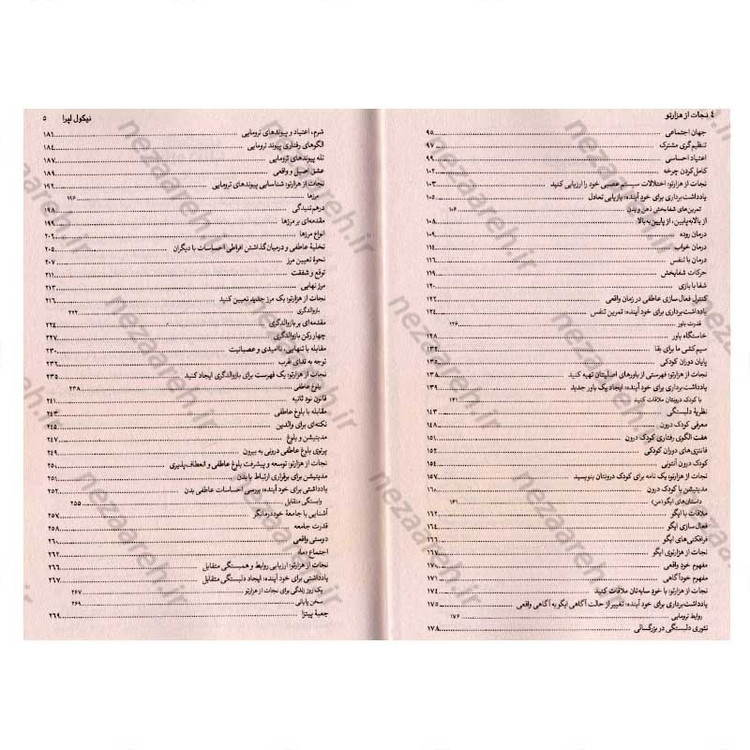 ۴ نجات از هزارتو
جهان اجتماعی ۹۵
تنظیم‌گری مشترک ۹۷
اعتیاد احساسی ۹۹
کامل‌کردن چرخه
نجات از هزارتو: اختلالات سیستم عصبی خود را ارزیابی کنید ۱۰۳
یادداشت‌برداری برای خود آینده: بازیابی تعادل
تمرین‌های شفابخش ذهن و بدن ۱۰۶
از بالا به پایین، از پایین به بالا ۱۰۸
درمان روده ۱۰۹
درمان خواب ۱۱۴
درمان با تنفس ۱۱۶
حرکات شفابخش ۱۱۹
شفا با بازی
کنترل فعال‌سازی عاطفی در زمان واقعی ۱۲۲
یادداشت‌برداری برای خود آینده: تمرین تنفس ۱۲۴
قدرت باور ۱۲۶
خاستگاه باور ۱۲۸
سیم‌کشی ما برای بقا ۱۳۲
پایان دوران کودکی ۱۳۵
نجات از هزارتو: فهرستی از باورهای اصلیتان تهیه کنید ۱۳۸
یادداشت‌برداری برای خود آینده: ایجاد یک باور جدید ۱۳۹
با کودک درونتان ملاقات کنید ۱۴۱
نظریهٔ دلبستگی ۱۴۳
معرفی کودک درون ۱۴۷
هفت الگوی رفتاری کودک درون ۱۵۱
فانتزی‌های دوران کودکی ۱۵۲
کودک درون آنتونی ۱۵۴
نجات از هزارتو: یک نامه برای کودک درونتان بنویسید ۱۵۷
مدیتیشن با کودک درون ۱۶۰
داستان‌های ایگو (من) ۱۶۱
ملاقات با ایگو ۱۶۲
فعال‌سازی ایگو ۱۶۴
فرافکنی‌های ایگو ۱۶۶
نجات از هزارتوی ایگو ۱۶۷
مفهوم خود واقعی ۱۷۰
مفهوم خودآگاهی ۱۷۱
نجات از هزارتو: با خود سایه‌تان ملاقات کنید ۱۷۴
یادداشت‌برداری برای خود آینده: تغییر از حالت آگاهی ایگو به آگاهی واقعی ۱۷۵
روابط ترومایی ۱۷۶
تئوری دلبستگی در بزرگسالی ۱۷۸
نیکول لپرا ۵
شرم، اعتیاد و پیوندهای ترومایی ۱۸۱
الگوهای رفتاری پیوند ترومایی ۱۸۴
تله پیوندهای ترومایی ۱۸۷
عشق اصیل و واقعی ۱۸۹
نجات از هزارتو: شناسایی پیوندهای ترومایی ۱۹۲
مرزها ۱۹۶
درهم‌تنیدگی ۱۹۸
مقدمه‌ای بر مرزها ۱۹۹
انواع مرزها ۲۰۲
تخلیهٔ عاطفی و درمیان‌گذاشتن افراطی احساسات با دیگران ۲۰۵
نحوهٔ تعیین مرز ۲۰۷
توقع و شفقت ۲۱۱
مرز نهایی ۲۱۳
نجات از هزارتو: یک مرز جدید تعیین کنید ۲۱۶
بازوالدگری ۲۲۲
مقدمه‌ای بر بازوالدگری ۲۲۴
چهار رکن بازوالدگری ۲۲۷
مقابله با تنهایی، ناامیدی و عصبانیت ۲۳۰
توجه به ندای غریب ۲۳۲
نجات از هزارتو: یک فهرست برای بازوالدگری ایجاد کنید ۲۳۵
بلوغ عاطفی ۲۳۸
قانون نود ثانیه ۲۴۱
مقابله با بلوغ عاطفی ۲۴۳
نکته‌ای برای والدین ۲۴۵
مدیتیشن و بلوغ ۲۴۷
پرتوی بلوغ عاطفی درونی به بیرون
نجات از هزارتو: توسعه و پیشرفت بلوغ عاطفی و انعطاف‌پذیری ۲۵۰
مدیتیشن برای برقراری ارتباط با بدن ۲۵۱
یادداشتی برای خود آینده: بررسی احساسات عاطفی بدن ۲۵۲
وابستگی متقابل ۲۵۵
آشنایی با جامعهٔ خوددرمانگر ۲۵۷
قدرت جامعه ۲۵۸
دوستی واقعی ۲۶۰
اجتماع «ما» ۲۶۲
نجات از هزارتو: ارزیابی روابط و همبستگی متقابل ۲۶۶
یادداشتی برای خود آینده: ایجاد دلبستگی متقابل ۲۶۷
یک روز زندگی برای نجات از هزارتو ۲۶۷
سخن پایانی
جعبهٔ پیتزا ۲۶۹
nezaareh.ir